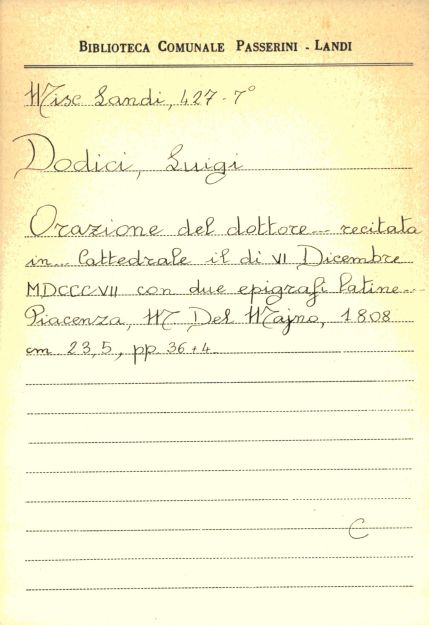 BIBLIOTECA COMUNALE PASSERINI - LANDI
Misc Landi, 427 - 7°
Dodici, Luigi
Orazione del dottore... recitata
in... Cattedrale il di VI Dicembre
MDCCCVII con due epigrafi latine...
Piacenza, M. Del Majno, 1808
cm 23,5, pp 36+4.
C